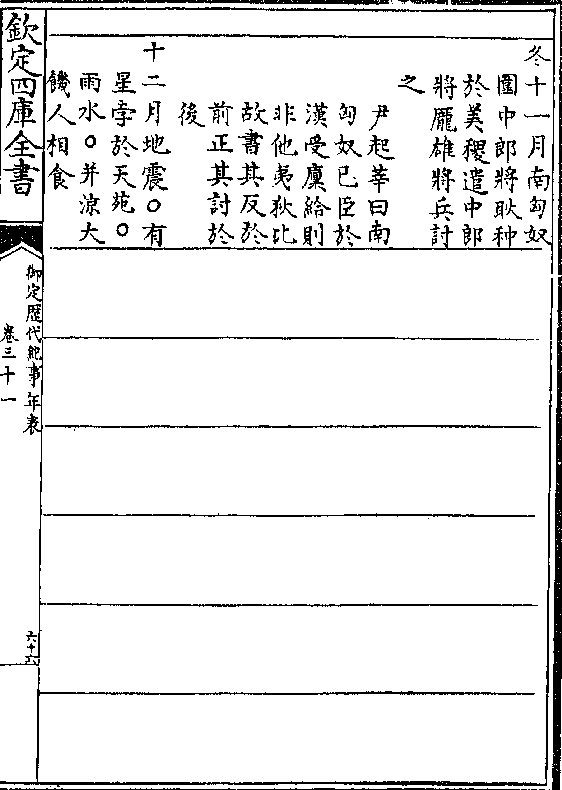 冬十一月南匈奴
圍中郎將耿种
於美稷遣中郎
將龎雄將兵討
之
尹起莘曰南
匈奴已臣於
漢受廩給則
非他夷狄比
故書其反於
前正其討於
後
十二月地震○有
星孛於天苑○
雨水○并涼大
饑人相食
欽定四庫全書
御定歴代紀事年表
卷三十一
六十六